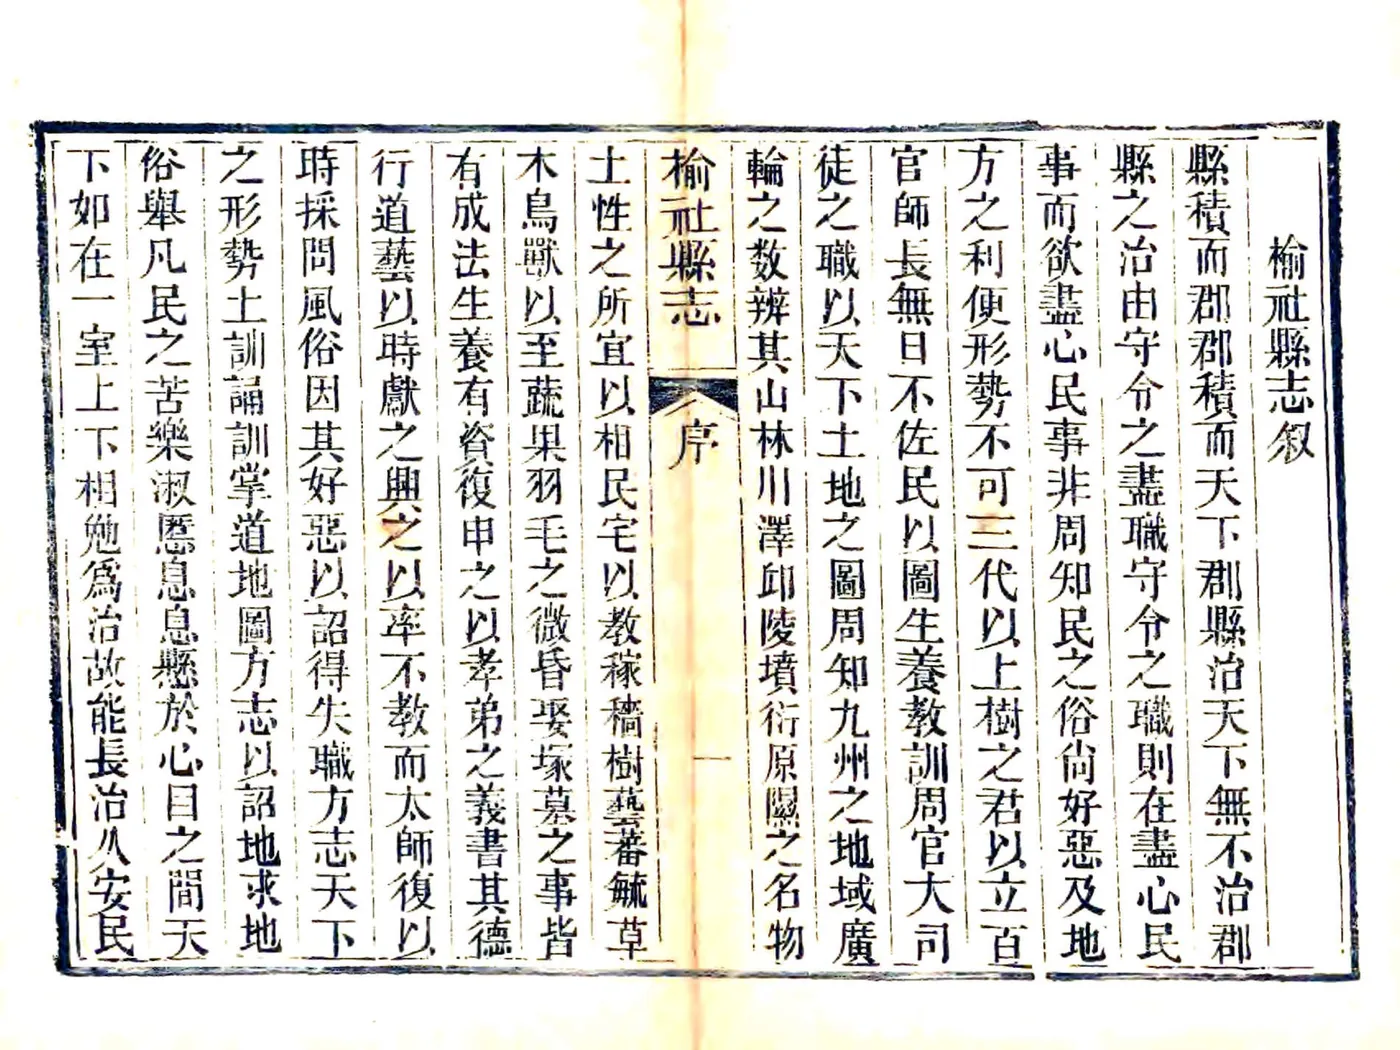 榆社縣志叙
縣積而郡郡積而天下郡縣治天下無不治郡
縣之治由守令之盡職守令之職則在盡心民
事而欲盡心民事非周知民之俗尙好惡及地
方之利便形勢不可三代以上樹之君以立百
官師長無日不佐民以圖生養教訓周官大司
徒之職以天下土地之圖周知九州之地域廣
輪之数辨其山林川澤邱陵墳衍原隰之名物
榆社縣志
序
一
土性之所宜以相民宅以教稼穡樹藝蕃毓草
木鳥獸以至蔬果羽毛之微昏娶塚墓之事皆
有成法生養有資復申之以孝弟之義書其德
行道藝以時獻之興之以率不教而太師復以
時採問風俗因其好惡以詔得失職方志天下
之形勢土訓誦訓掌道地圖方志以詔地求地
俗舉凡民之苦樂淑慝息息縣於心目之間天
下如在一室上下相勉爲治故能長治久安民